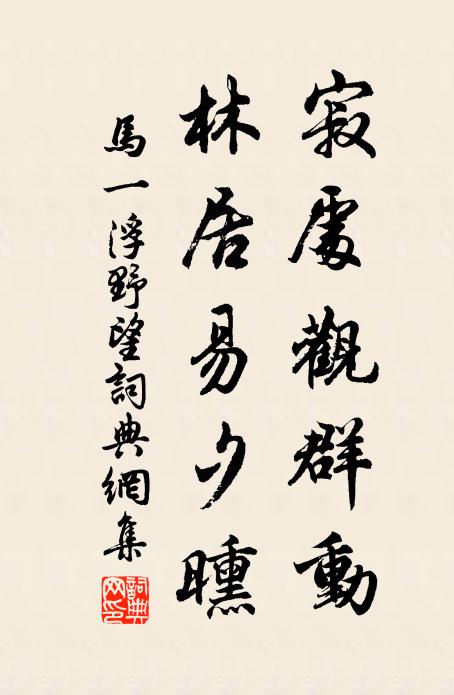 寂處觀群動
林居易夕曛
馬一浮野望詞典網集
詞典网印